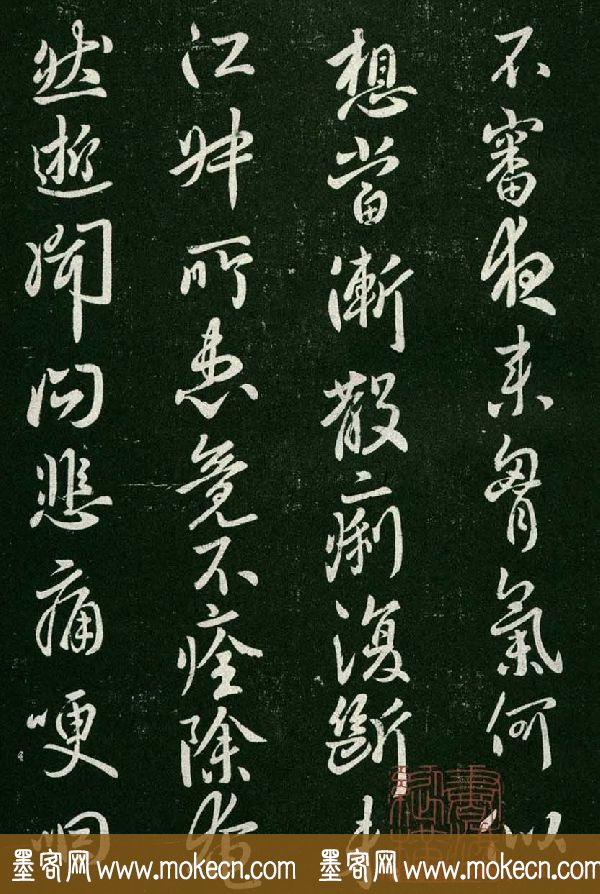 不審夜來胷氣何以
想當漸散痢復斷
江叔所患竟不痊除奄
然逝聞問悲痛哽咽
墨客网www.mokecn.com 墨客网www.mokecn.com